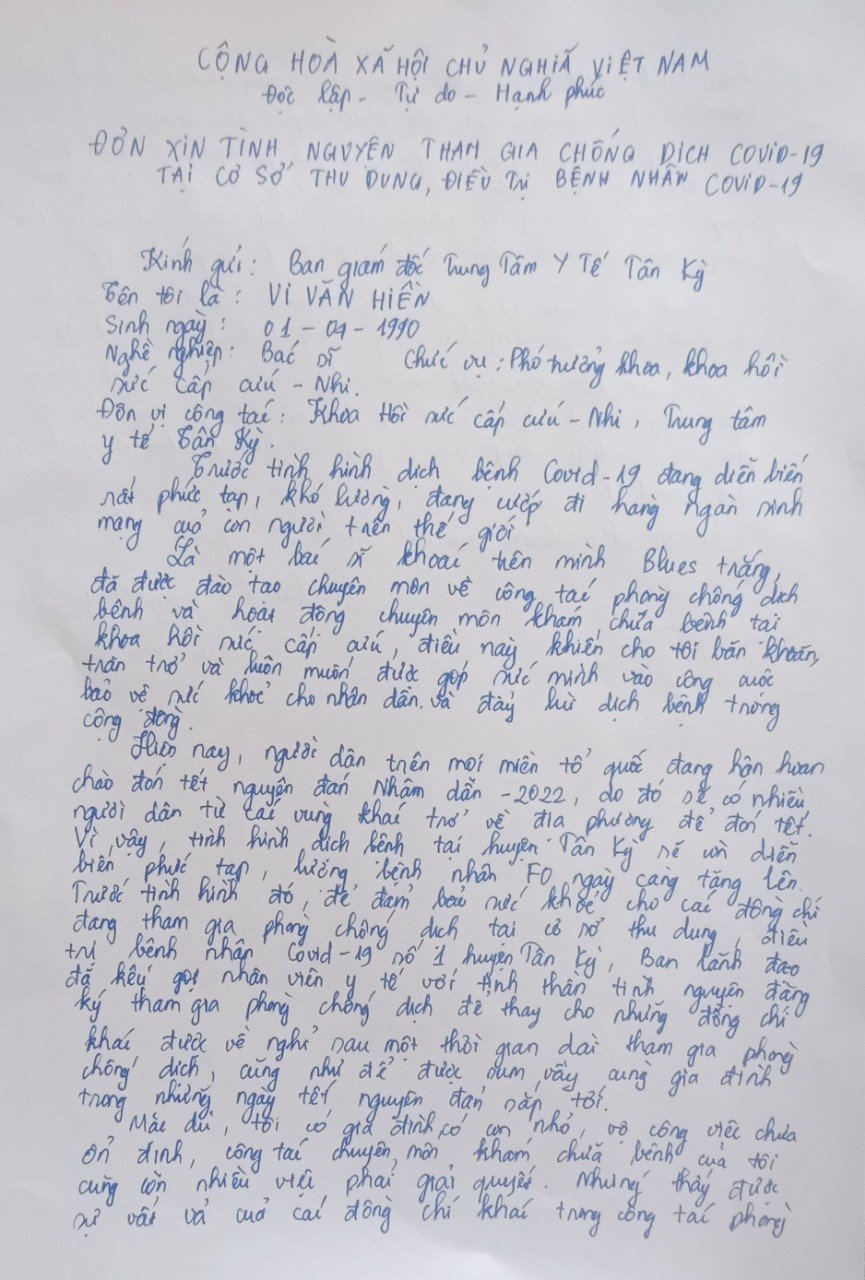 CỘNG HOÀ XÃ HỘI CHỦ NGHIÃ VIỆT NAM
Độc lập - Tự do - Hạnh phúc
ĐƠN XIN TÌNH NGUYỆN THAM GIA CHỐNG DỊCH COVID-19
TẠI CƠ SỞ THU DUNG, ĐIỀU TRỊ BỆNH NHÂN COVID-19
Kính gửi: Ban giám đốc Trung Tâm Y Tế Tân Kỳ
Tên tôi là: VI VĂN HIỀN
Sinh ngày: 01-04-1990
Nghề nghiệp: Bác sĩ Chức vụ: Phó trưởng khoa, khoa hồi
sức cấp cứu - Nhi.
Đơn vị công tác: Khoa Hồi sức cấp cứu - Nhi, Trung tâm
y tế Tân Kỳ.
Trước tình hình dịch bệnh Covid-19 đang diễn biến
rất phức tạp, khó lường, đang cướp đi hàng ngàn sinh
mạng của con người trên thế giới
Là một bác sĩ khoác trên mình Blues trắng,
đã được đào tạo chuyên môn về công tác phòng chống dịch
bệnh và hoạt động chuyên môn khám, chữa bệnh tại
khoa hồi sức cấp cứu, điều này khiến cho tôi băn khoăn,
trăn trở và luôn muốn được góp sức mình vào công cuộc
bảo vệ sức khoẻ cho nhân dân và đẩy lùi dịch bệnh trong
cộng đồng.
Hiện nay, người dân trên mọi miền tổ quốc đang hân hoan
chào đón tết nguyên đán Nhâm dần - 2022, do đó sẽ có nhiều
người dân từ các vùng khác trở về địa phương để đón tết.
Vì vậy, tình hình dịch bệnh tại huyện Tân Kỳ sẽ còn diễn
biến phức tạp, lượng bệnh nhân F0 ngày càng tăng lên.
Trước tình hình đó, để đảm bảo sức khoẻ cho các đồng chí
đang tham gia phòng chống dịch tại cơ sở thu dung, điều
trị bệnh nhân Covid-19 số 1 huyện Tân Kỳ, Ban lãnh đạo
đã kêu gọi nhân viên y tế với tinh thần tình nguyện đăng
ký tham gia phòng chống dịch để thay cho những đồng chí
khác được về nghỉ sau một thời gian dài tham gia phòng
chống dịch, cũng như để được sum vầy cùng gia đình
trong những ngày tết nguyên đán sắp tới.
Mặc dù, tôi có gia đình, có con nhỏ, vợ công việc chưa
ổn định, công tác chuyên môn khám chữa bệnh của tôi
cũng còn nhiều việc phải giải quyết. Nhưng thấy được
sự vất vả của các đồng chí khác trong công tác phòng